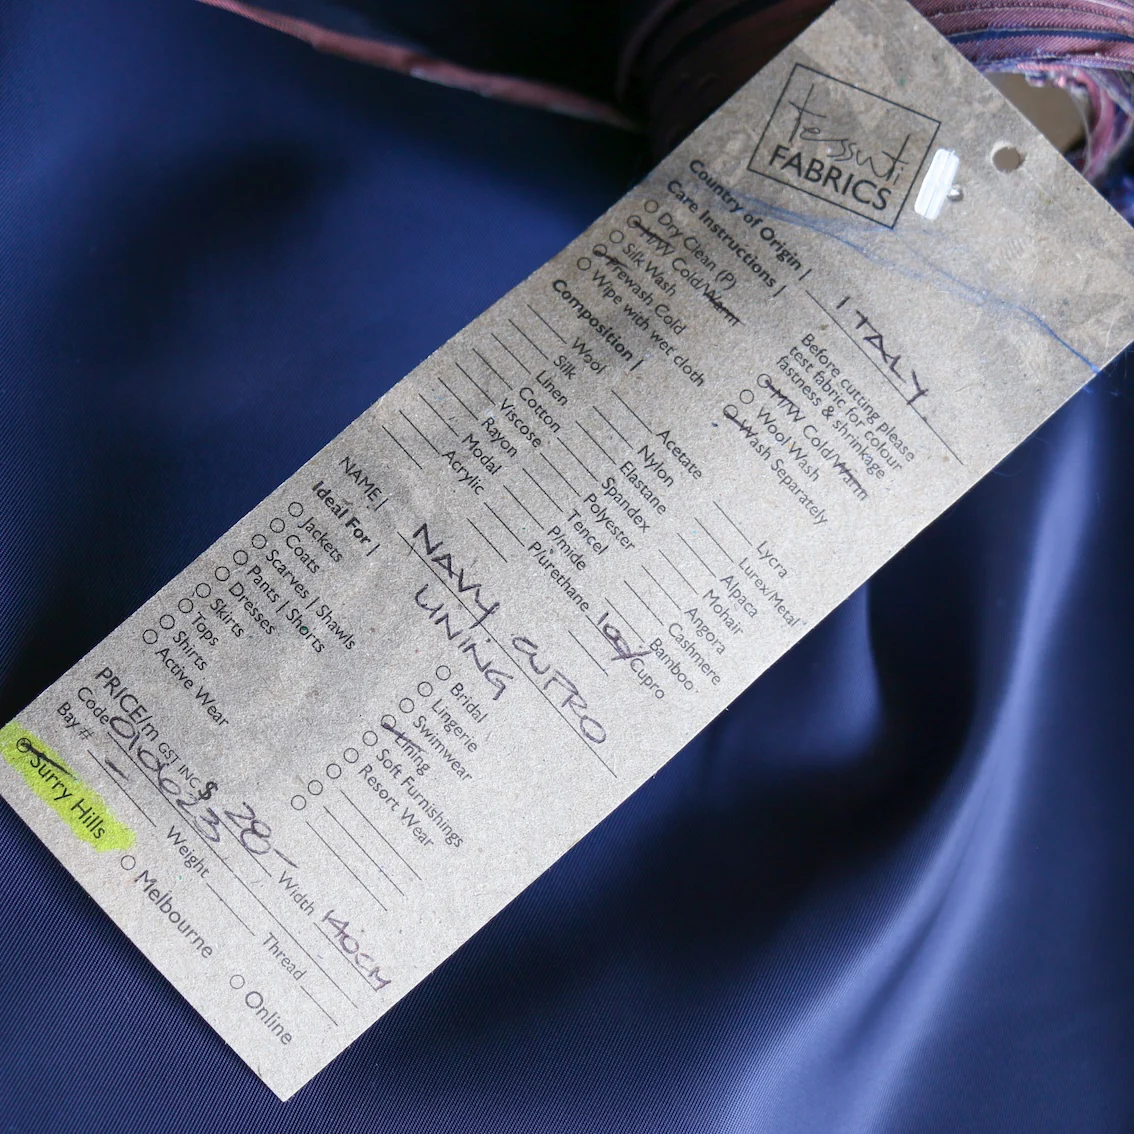 Tessuti
FABRICS
Country of Origin | ITALY
Care Instructions |
Dry Clean (P)
M/W Cold/Warm
Silk Wash
Prewash Cold
Wipe with wet cloth
Before cutting please
test fabric for colour
fastness & shrinkage
M/W Cold/Warm
Wool Wash
Wash Separately
Composition |
Wool
Silk
Linen
Cotton
Viscose
Rayon
Modal
Acrylic
Acetate
Nylon
Elastane
Spandex
Polyester
Tencel
P/mide
P/urethane
Lycra
Lurex/Metal
Alpaca
Mohair
Angora
Cashmere
Bamboo
100% Cupro
NAME | NAVY CUPRO
LINING
Ideal For |
Jackets
Coats
Scarves | Shawls
Pants | Shorts
Dresses
Skirts
Tops
Shirts
Active Wear
Bridal
Lingerie
Swimwear
Lining
Soft Furnishings
Resort Wear
PRICE/m GST INC $ 28- Width 140cm
Code 010623 Weight Thread
Bay # -
Surry Hills Melbourne Online